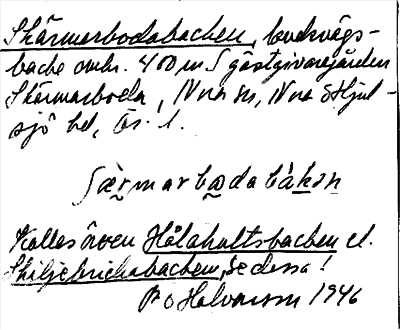 Skärmarbodabacken, landsvägs-
backe omkr. 400 m S gästgivaregården
Skärmarboda, Nora sn, Nora o Hjul-
sjö bd, Ör. l.
ʃær̥marbo̥dabàkən
Kallas även Hålahultsbacken el.
Skiljebricksbacken, se dessa!
B o Halvarsson 1946